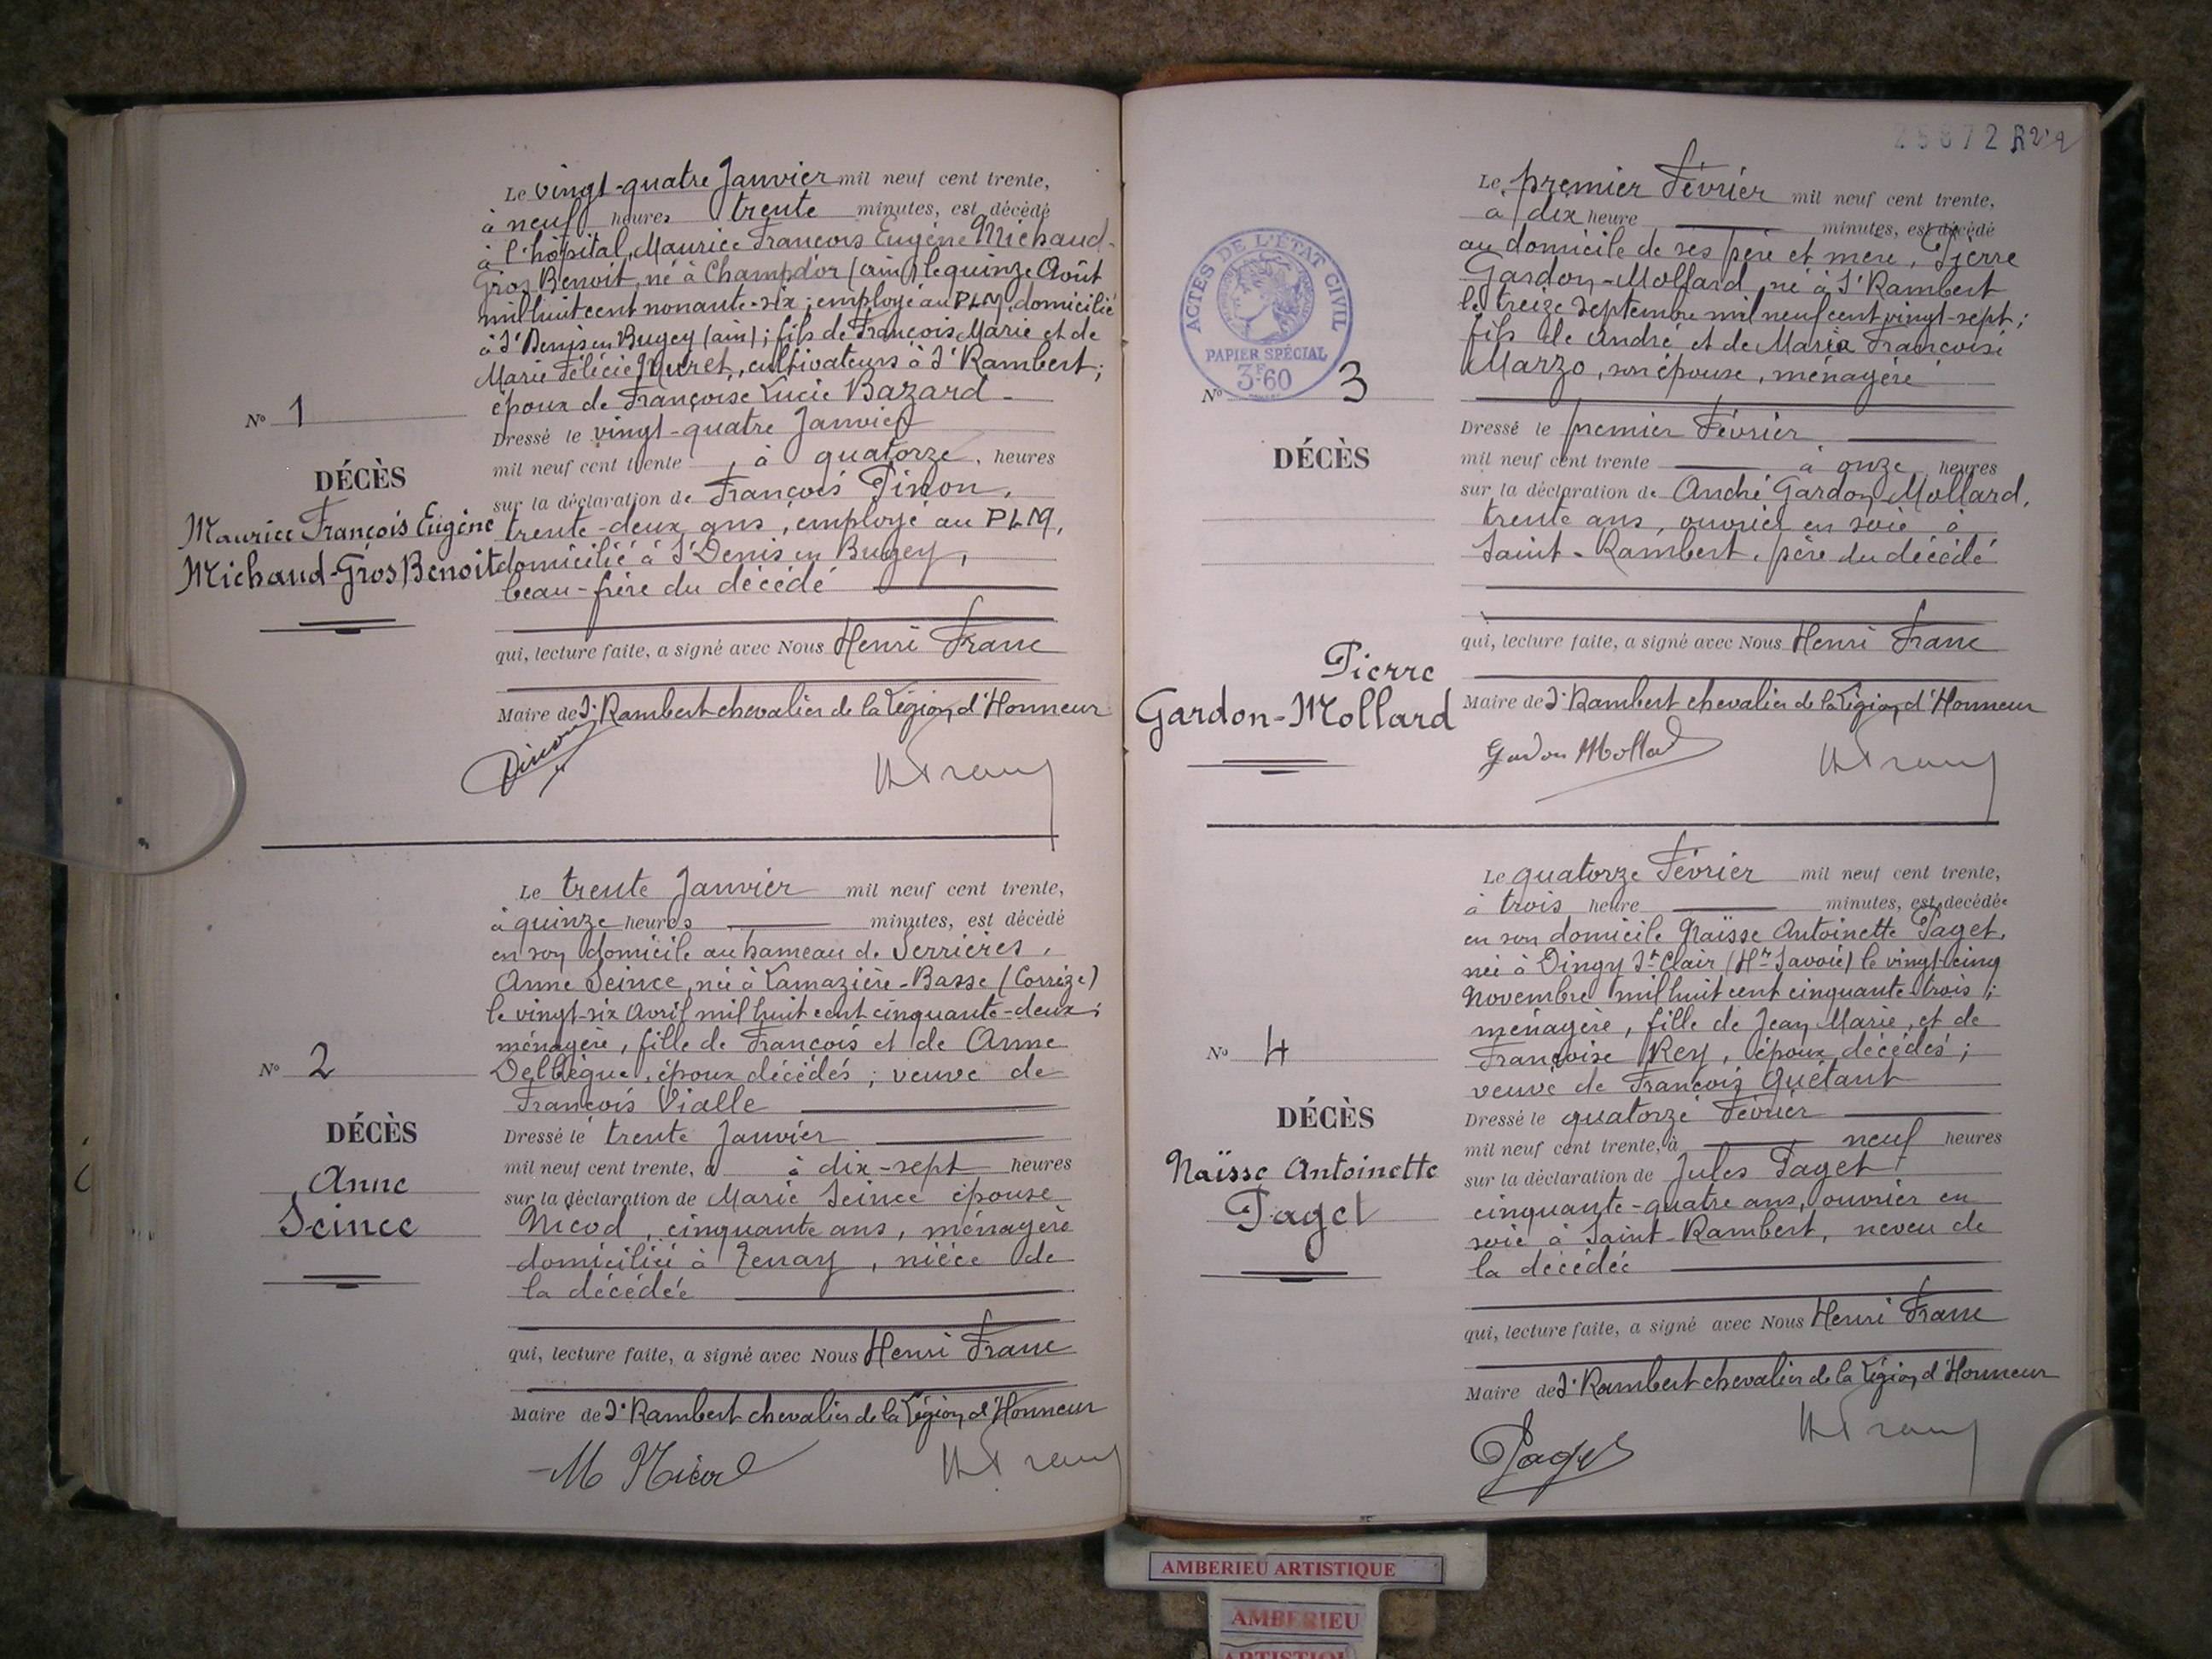 Le vingt-quatre Janvier mil neuf cent trente,
à neuf heures trente minutes, est décédé
à l'hôpital, Maurice François Eugène Michaud-
Gros Benoit, né à Champdor (ain) le quinze Août
mil huit cent nonante-six ; employé au PLM, domicilié
à St Denis en Bugey (ain) ; fils de François Marie et de
Marie Félicie Muret, cultivateurs à St Rambert ;
époux de Françoise Lucie Bazard
N° 1
Dressé le vingt-quatre Janvier
mil neuf cent trente, à quatorze heures
DÉCÈS
sur la déclaration de François Pinon,
Maurice François Eugène
trente-deux ans, employé au PLM,
Michaud-Gros Benoit
domicilié à St Denis en Bugey,
beau-frère du décédé
qui, lecture faite, a signé avec Nous Henri Franc
Maire de St Rambert chevalier de la Légion d'Honneur
Pinon
HFranc
Le trente Janvier mil neuf cent trente,
à quinze heures minutes, est décédé
en son domicile au hameau de Serrières,
Anne Seince, née à Lamazière-Basse (Corrèze)
le vingt-six Avril mil huit cent cinquante-deux ;
ménagère, fille de François et de Anne
N° 2
Delbègue, époux décédés ; veuve de
François Vialle
DÉCÈS
Dressé le trente Janvier
mil neuf cent trente, à à dix-sept heures
Anne
sur la déclaration de Marie Seince épouse
Seince
Nicod, cinquante ans, ménagère
domiciliée à Tenay, nièce de
la décédée
qui, lecture faite, a signé avec Nous Henri Franc
Maire de St Rambert chevalier de la Légion d'Honneur
M Nicod
HFranc
25872 R
Le premier Février mil neuf cent trente,
à dix heure minutes, est décédé
au domicile de ses père et mère, Pierre
Gardon-Mollard, né à St Rambert
le treize Septembre mil neuf cent vingt-sept ;
fils de André et de Maria Françoise
Marzo, son épouse, ménagère
ACTES DE L'ÉTAT CIVIL
PAPIER SPÉCIAL
3F60
N° 3
DÉCÈS
Dressé le premier Février
mil neuf cent trente à onze heures
sur la déclaration de André Gardon-Mollard,
trente ans, ouvrier en soie à
Saint-Rambert, père du décédé
qui, lecture faite, a signé avec Nous Henri Franc
Pierre
Gardon-Mollard
Maire de St Rambert chevalier de la Légion d'Honneur
Gardon Mollard
HFranc
Le quatorze Février mil neuf cent trente,
à trois heure minutes, est décédée
en son domicile Naïsse Antoinette Paget,
née à Dingy St Clair (Hte Savoie) le vingt-cinq
Novembre mil huit cent cinquante-trois ;
ménagère, fille de Jean Marie, et de
N° 4
Françoise Rey, époux décédés ;
veuve de François Quétant
DÉCÈS
Dressé le quatorze Février
mil neuf cent trente, à neuf heures
Naïsse Antoinette
sur la déclaration de Jules Paget
Paget
cinquante-quatre ans, ouvrier en
soie à Saint-Rambert, neveu de
la décédée
qui, lecture faite, a signé avec Nous Henri Franc
Maire de St Rambert chevalier de la Légion d'Honneur
Paget
HFranc
AMBERIEU ARTISTIQUE
AMBERIEU
ARTISTIQUE